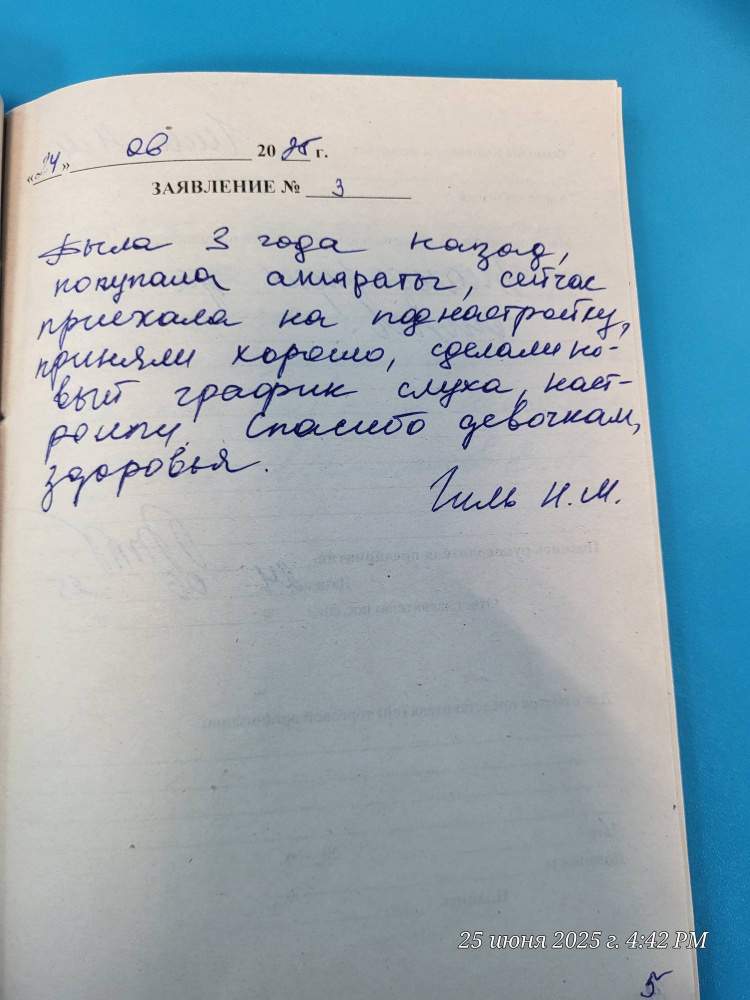 «24» 06 2025 г.
ЗАЯВЛЕНИЕ № 3
Была 3 года назад,
покупала аппараты, сейчас
приехала на поднастройку,
приняли хорошо, сделали но-
вый график слуха, наст-
роили. Спасибо девочкам,
здоровья.
Гиль Н.М.
25 июня 2025 г. 4:42 PM
5